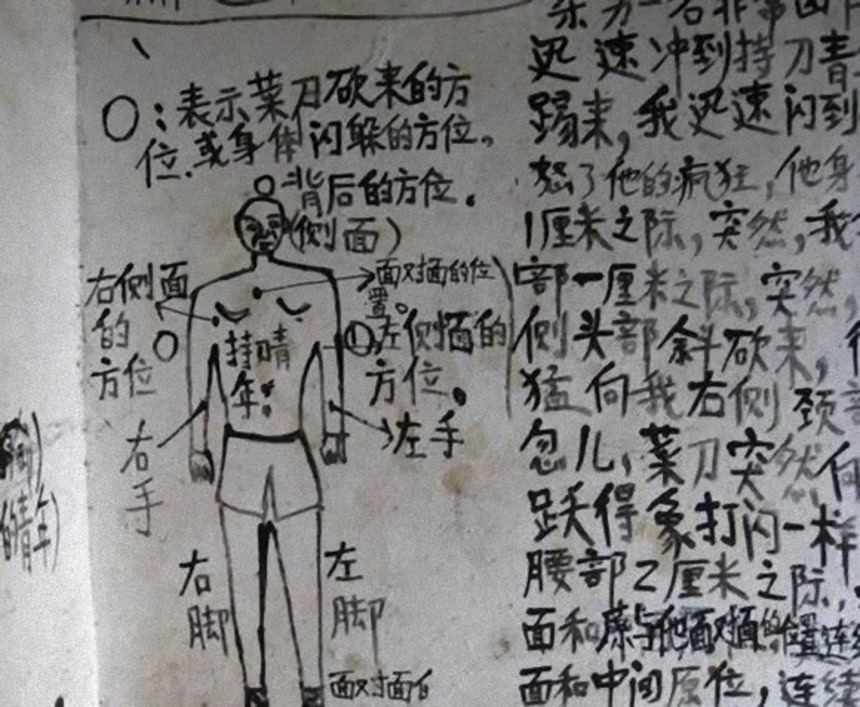 〇：表示菜刀砍来的方
位.或身体闪躲的方位。
背后的方位。
(侧面)
面对面的位
置。
右侧面
的
方位
①左侧面的
方位。
持
年
右
手
左手
右
脚
左
脚
面对面
的青年)
迅速冲到持刀青
踢来,我迅速闪到
怒了他的疯狂,他身
1厘米之际,突然,我
部一厘米之际,突然,
侧头部斜砍来,
猛向我右侧颈
忽儿,菜刀突然向
跃得象打闪一样
腰部2厘米之际,
面和 与他面对面的位置连
面和中间原位,连续